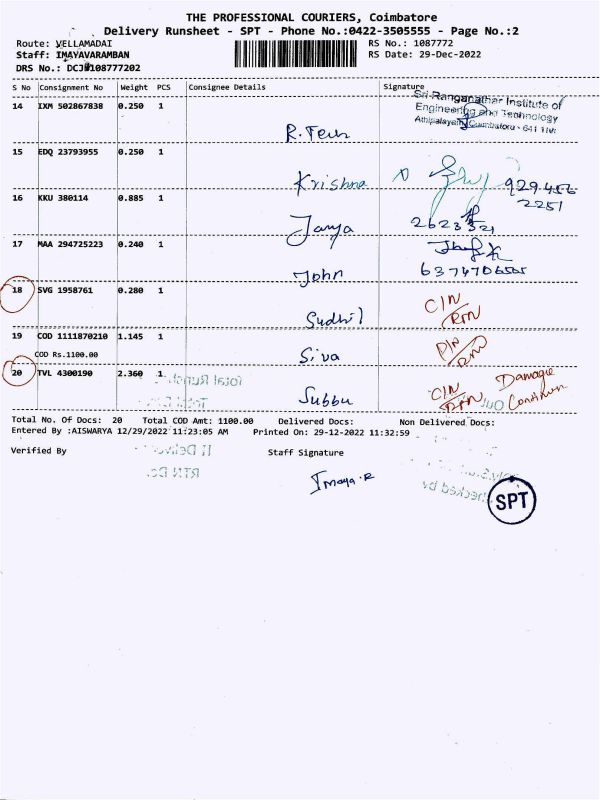 THE PROFESSIONAL COURIERS, Coimbatore
Delivery Runsheet - SPT - Phone No.:0422-3505555 - Page No.:2
Route: VELLAMADAI
RS No.: 1087772
Staff: IMAYAVARAMBAN
RS Date: 29-Dec-2022
DRS No.: DCJ 108777202
S No Consignment No Weight PCS Consignee Details Signature
14 IXM 502867838 0.250 1
Sri Ranganathar Institute of
Engineering and Technology
Athipalayam, Coimbatore - 641 110
R.
15 EDQ 23793955 0.250 1
Krishna 929 456
2251
16 KKU 380114 0.885 1
Janya 2623321
17 MAA 294725223 0.240 1
John 6374706505
18 SVG 1958761 0.280 1
Sudhil CIN/RTN
19 COD 1111870210 1.145 1
COD Rs.1100.00
Siva RTN
20 TVL 4300190 2.360 1
Subbu CIN/RTN Damage
Total No. Of Docs: 20 Total COD Amt: 1100.00 Delivered Docs: Non Delivered Docs:
Entered By :AISWARYA 12/29/2022 11:23:05 AM Printed On: 29-12-2022 11:32:59
Verified By Staff Signature
Imaya.R
SPT